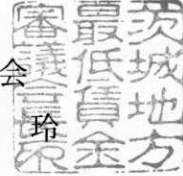 茨城地方
最低賃金
審議会長印
会
玲